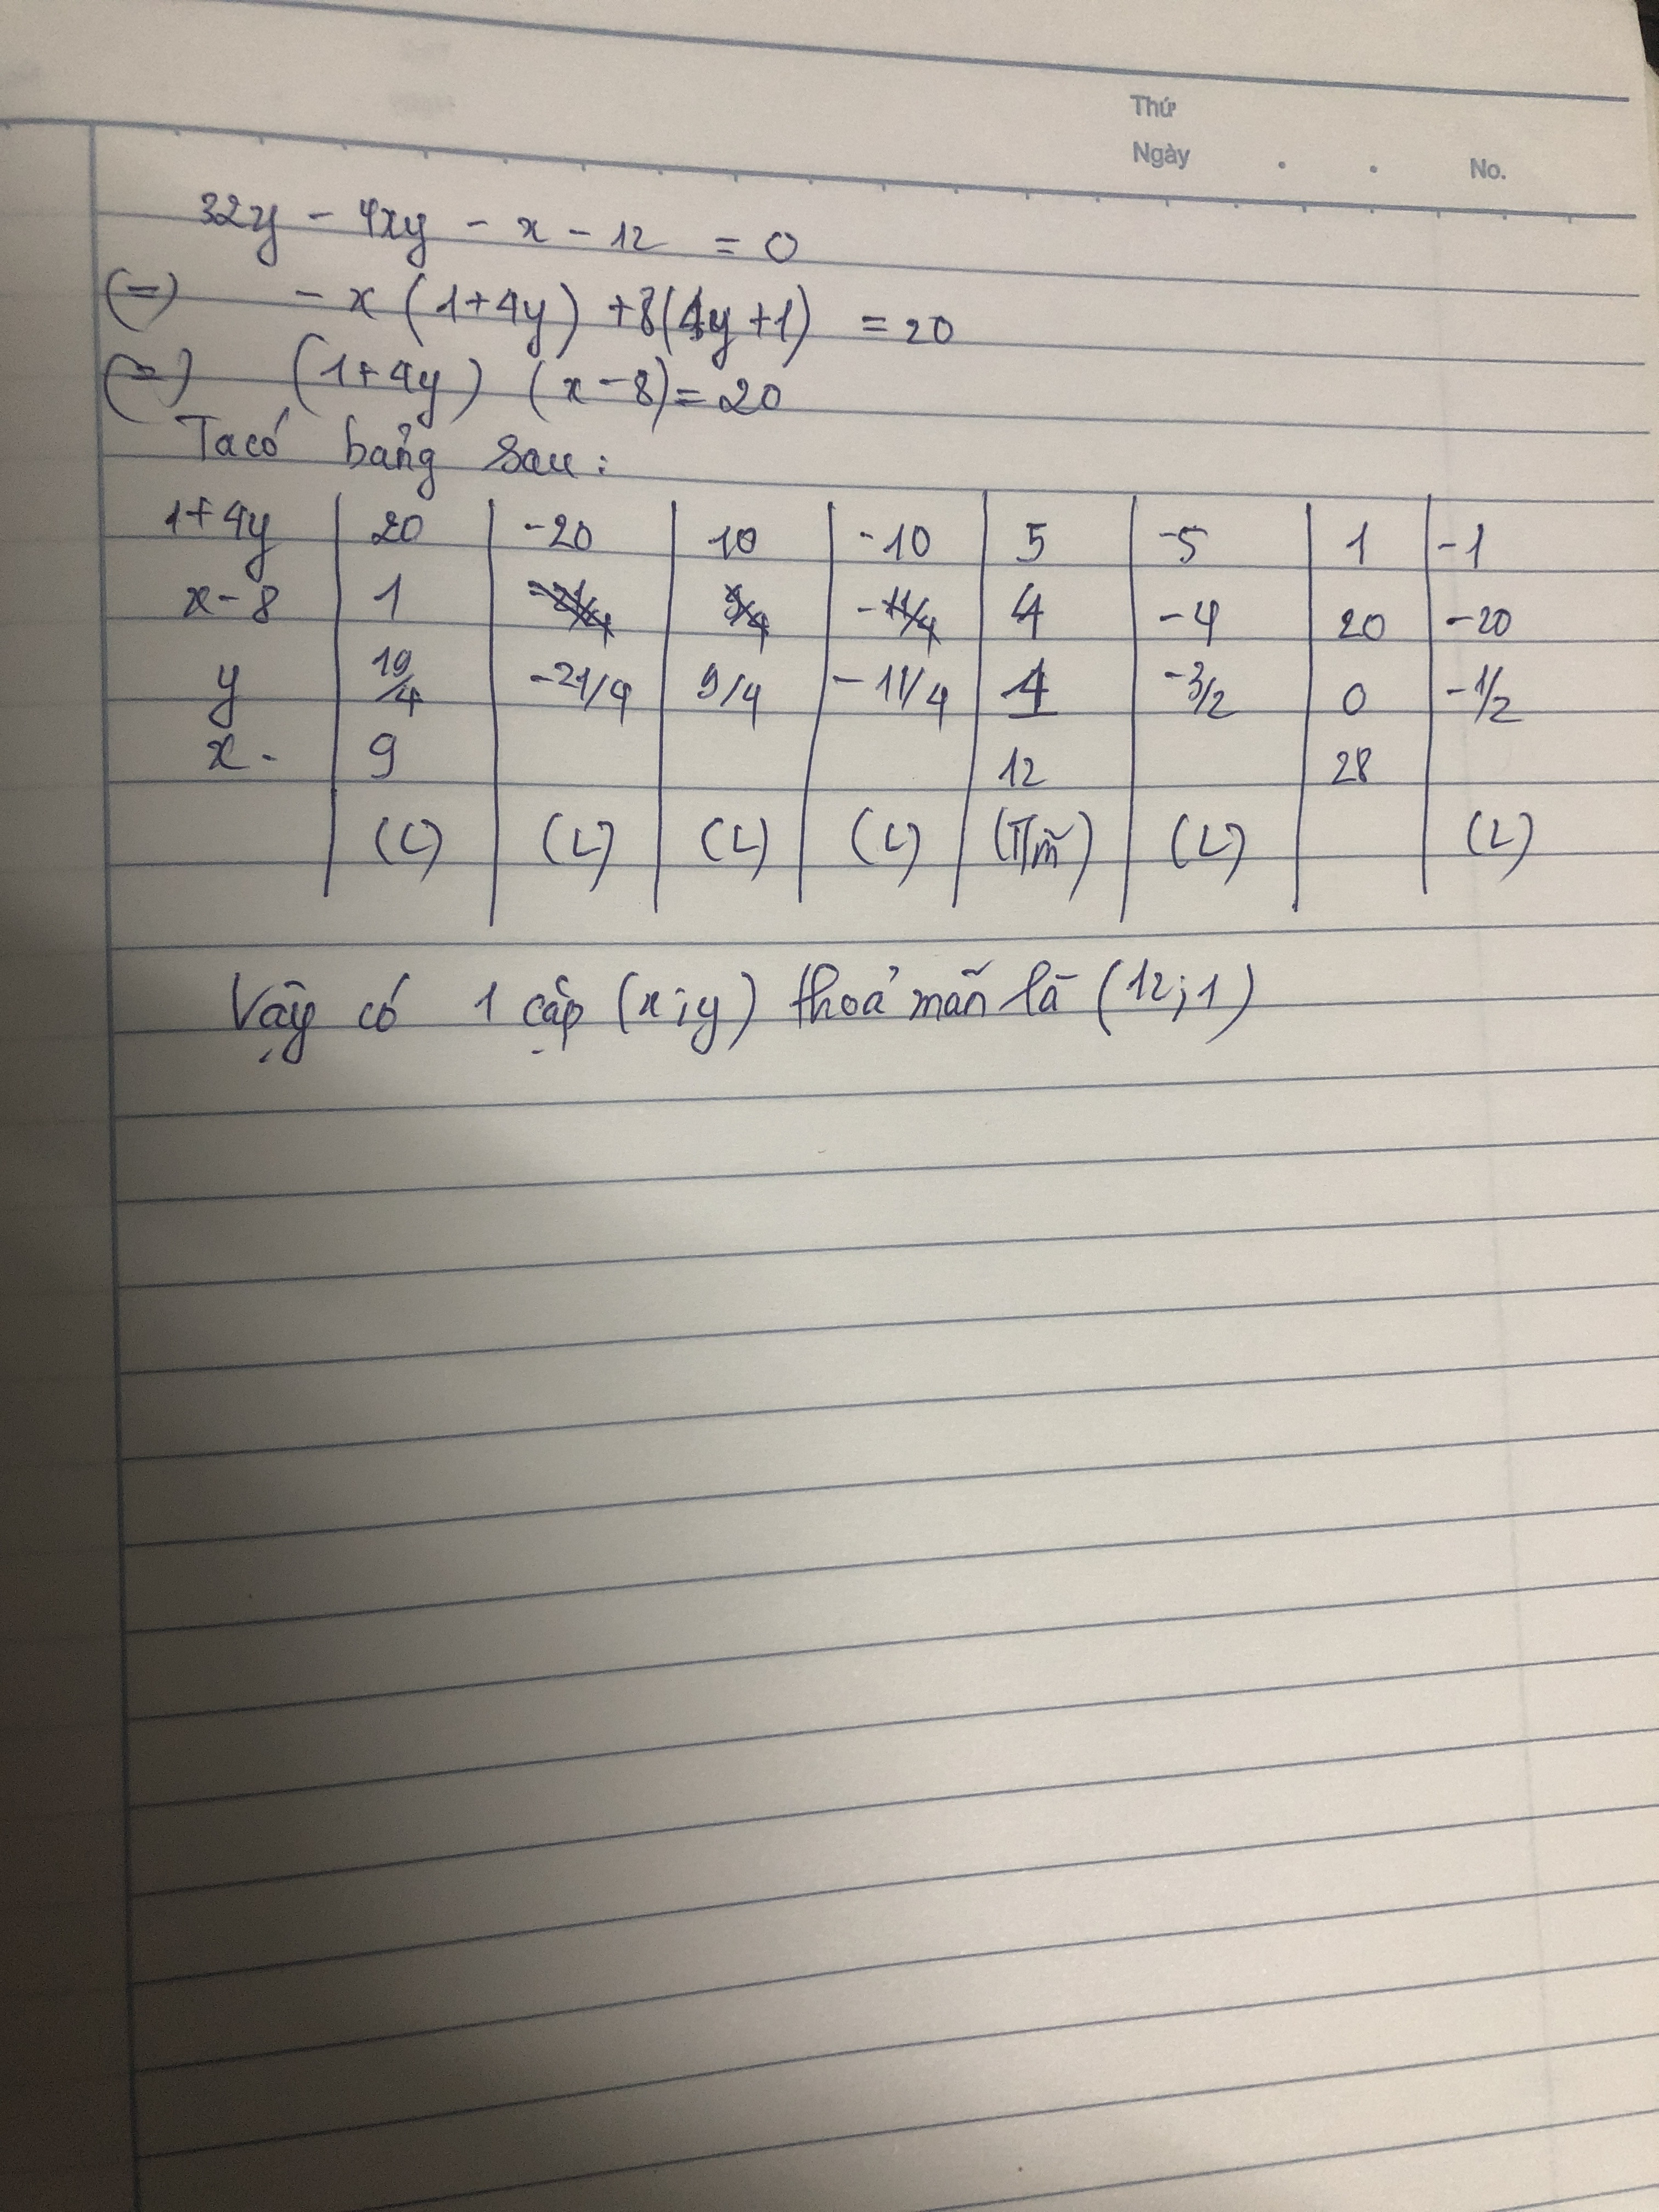 Thứ
Ngày . . No.
32y - 4xy - x - 12 = 0
(=) - x (1+4y) + 8(4y+1) = 20
(=) (1+4y) (x-8) = 20
Ta có bảng sau:
1+4y | 20 | -20 | 10 | -10 | 5 | -5 | 1 | -1
x-8 | 1 | | | | 4 | -4 | 20 | -20
y | 19/4 | -21/4 | 9/4 | -11/4 | 1 | -3/2 | 0 | -1/2
x - | 9 | | | | 12 | | 28 |
(L) | (L) | (L) | (L) | (T/m) | (L) | | (L)
Vậy có 1 cặp (x;y) thoả mãn là (12;1)